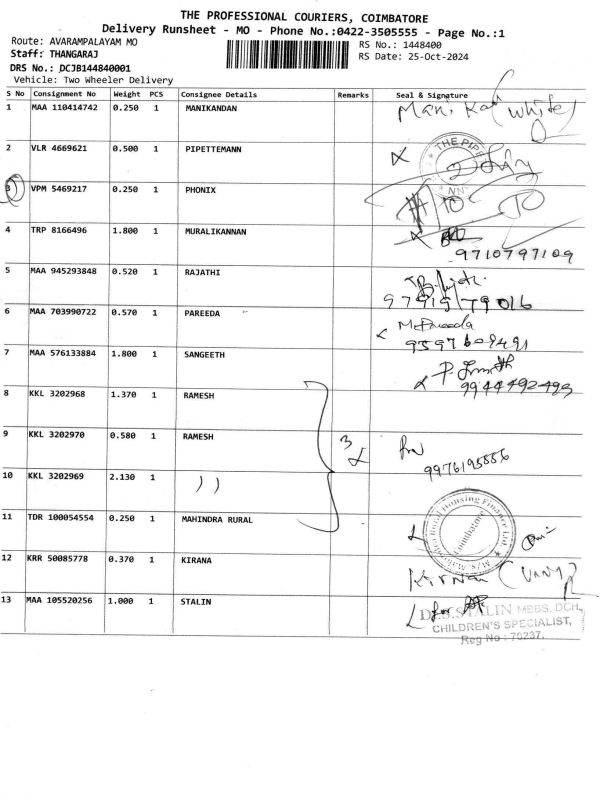 THE PROFESSIONAL COURIERS, COIMBATORE
Delivery Runsheet - MO - Phone No.:0422-3505555 - Page No.:1
Route: AVARAMPALAYAM MO
RS No.: 1448400
Staff: THANGARAJ
RS Date: 25-Oct-2024
DRS No.: DCJB144840001
Vehicle: Two Wheeler Delivery
S No Consignment No Weight PCS Consignee Details Remarks Seal & Signature
1 MAA 110414742 0.250 1 MANIKANDAN Mani (White)
2 VLR 4669621 0.500 1 PIPETTEMANN THE PIPE
3 VPM 5469217 0.250 1 PHONIX
4 TRP 8166496 1.800 1 MURALIKANNAN
9710797109
5 MAA 945293848 0.520 1 RAJATHI
97919 79016
6 MAA 703990722 0.570 1 PAREEDA M. Pareeda
9597609491
7 MAA 576133884 1.800 1 SANGEETH
9944492493
8 KKL 3202968 1.370 1 RAMESH
9 KKL 3202970 0.580 1 RAMESH 3
9976195556
10 KKL 3202969 2.130 1 ))
11 TDR 100054554 0.250 1 MAHINDRA RURAL Rural Housing Finance Ltd Coimbatore
12 KRR 50085778 0.370 1 KIRANA
13 MAA 105520256 1.000 1 STALIN for
STALIN MBBS, DCH,
CHILDREN'S SPECIALIST,
Reg No : 70237.